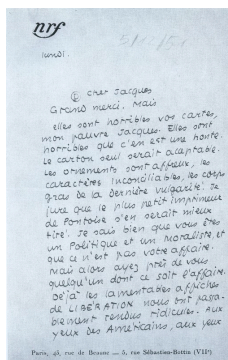 nrf
lundi.
cher Jacques
Grand merci. Mais
elles sont horribles vos cartes,
mon pauvre Jacques. Elles sont
horribles que c'en est une honte.
Le carton seul serait acceptable.
Les ornements sont affreux, les
caractères inconciliables, les corps
gras de la dernière vulgarité. Je
jure que le plus petit imprimeur
de Pontoise s'en serait mieux
tiré. Je sais bien que vous êtes
un Politique et un Moraliste, et
que ce n'est pas votre affaire.
Mais alors ayez près de vous
quelqu'un dont ce soit l'affaire.
Déjà les lamentables affiches
de LIBÉRATION nous ont
rendus ridicules. Aux
yeux des Américains, aux yeux
Paris, 43, rue de Beaune — 5, rue Sébastien-Bottin (VIIe)